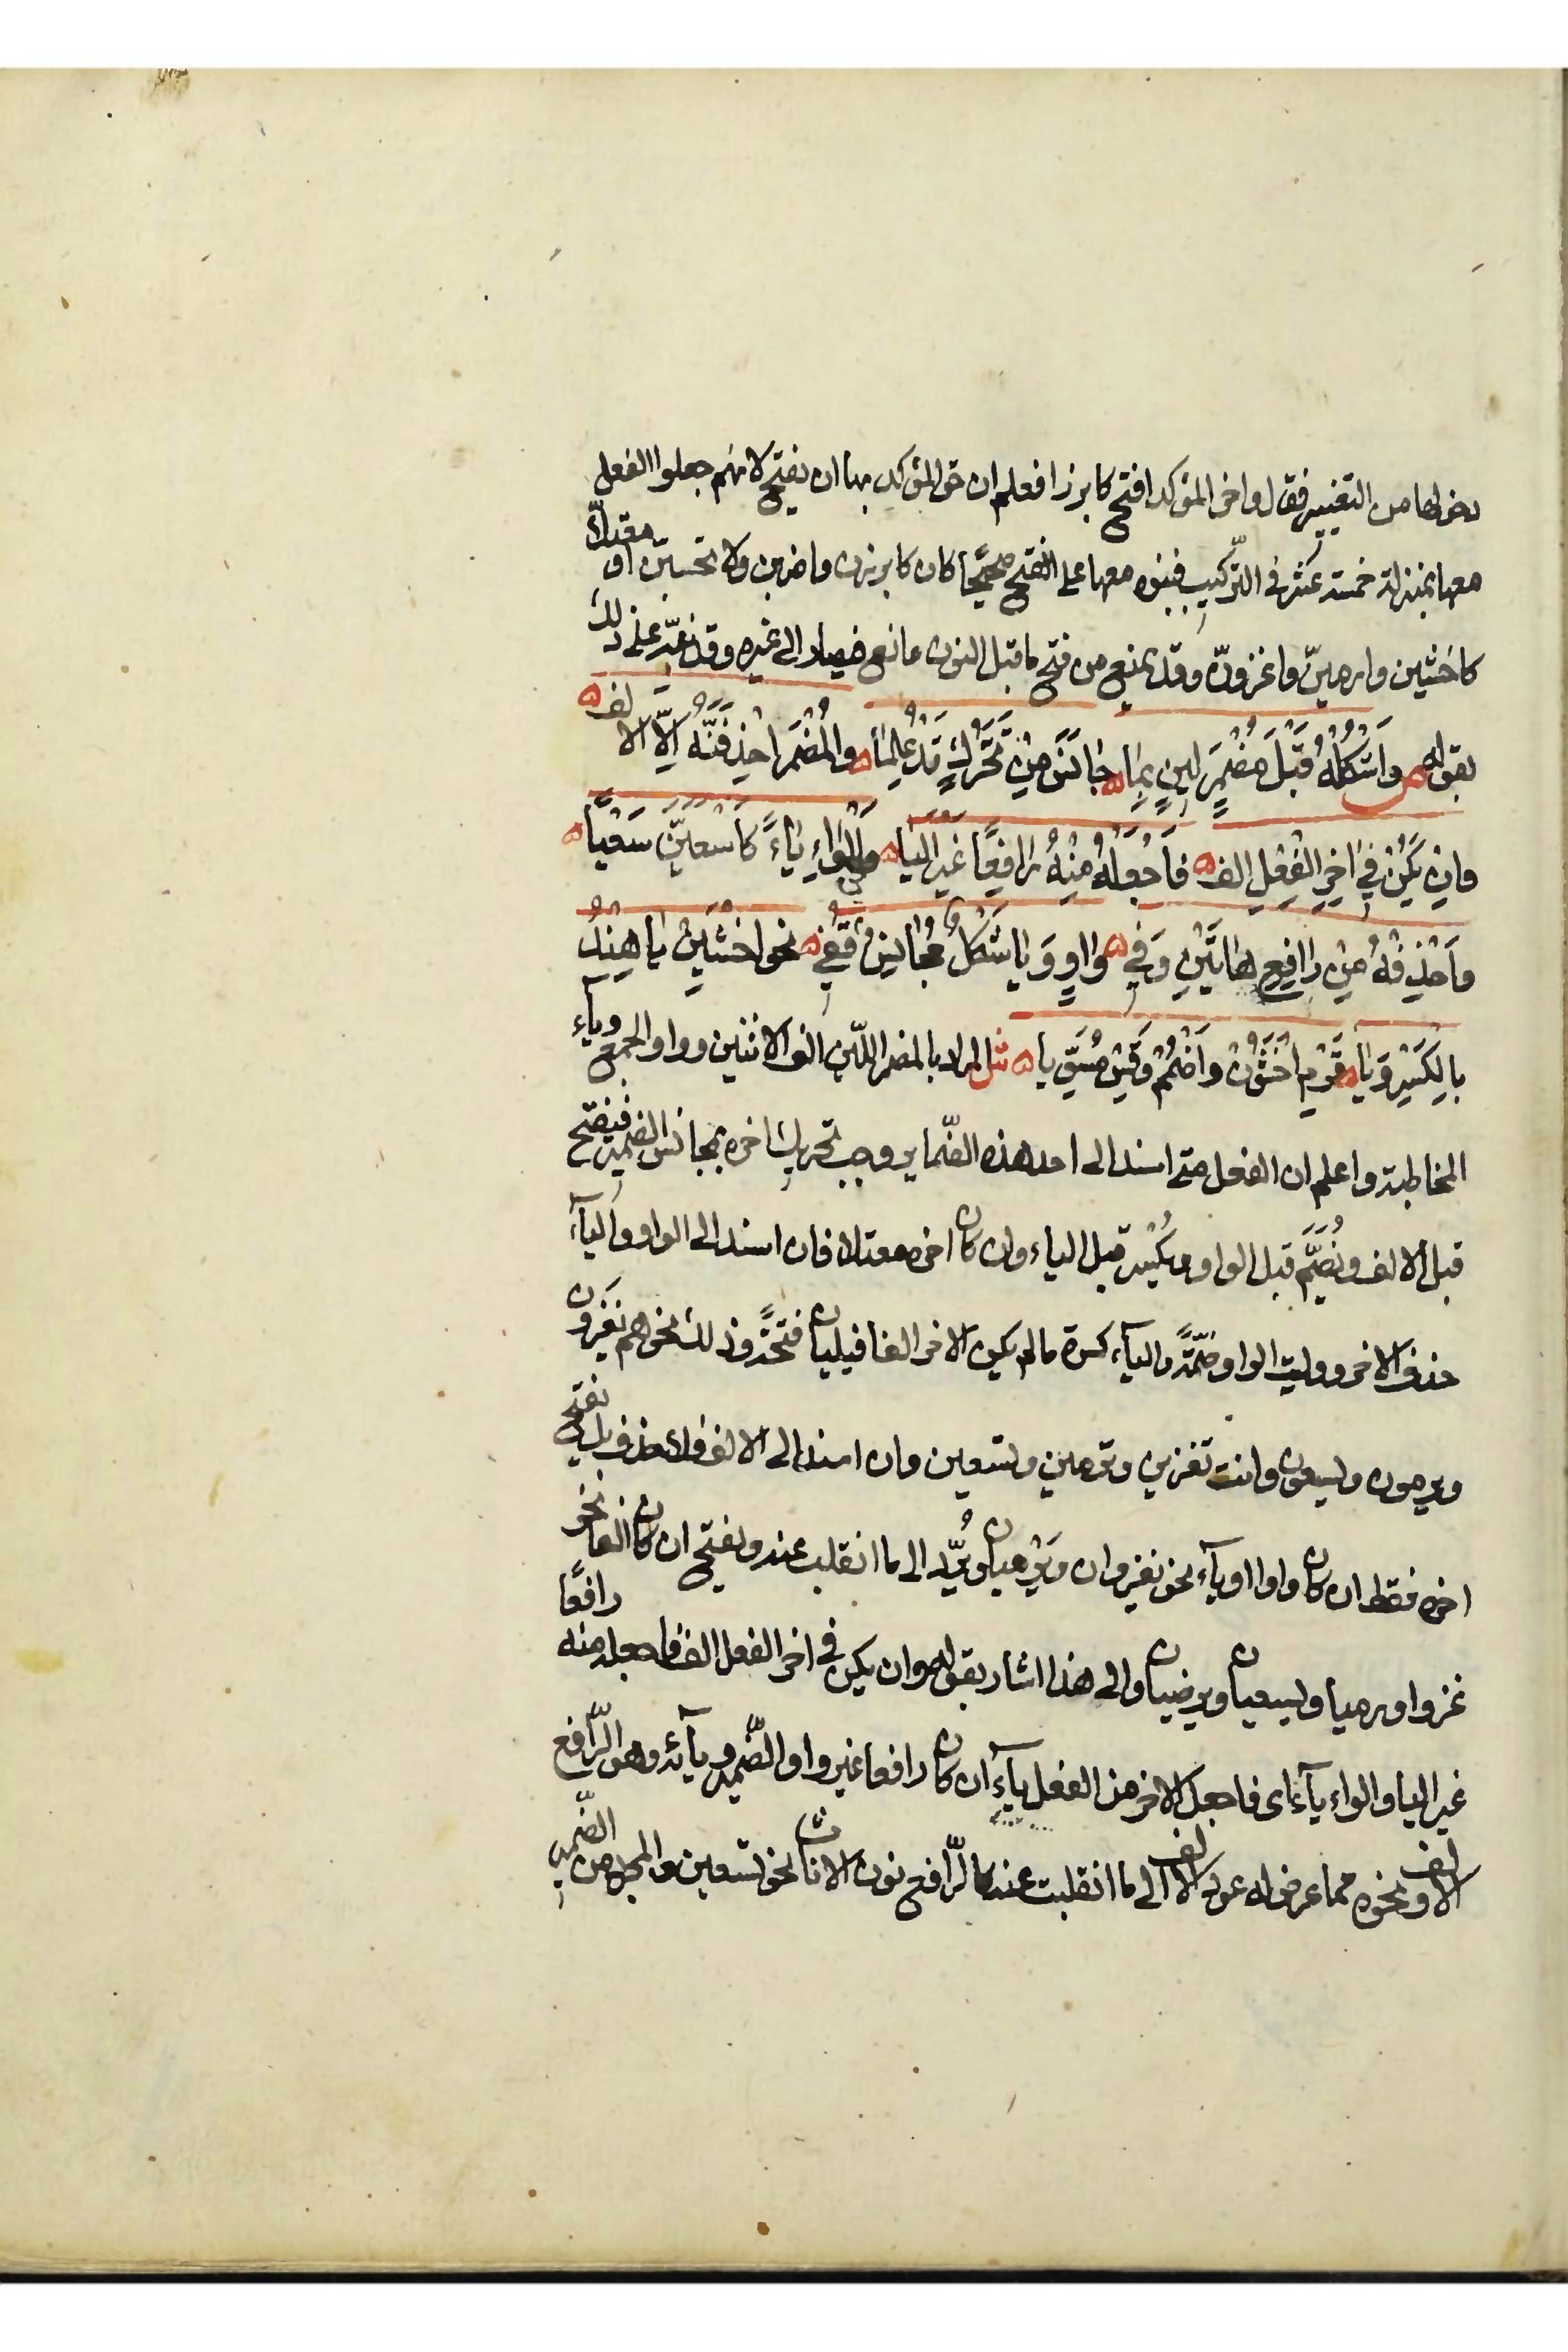 يعرض لها من التغيير فقال واخر المؤكد افتح كابرزا فعلم ان حق المؤكد بها ان يفتح لانهم جعلوا الفعل
معها بمنزلة خمسة عشر في التركيب فبنوه معها على الفتح صحيحًا كان كابرزن واضربن ولا تحسبن او معتلا
كاخشين وارمينّ واغزونّ وقد يمنع من فتح ما قبل النون مانع فيصار الى غيره وقد نبّه على ذلك
بقوله ص وَاشْكُلْهُ قَبْلَ مُضْمَرٍ لَيِنٍ بِمَا ه جَانَسَ مِنْ تَحَرُّكٍ قَدْ عُلِمَا ه والمُضْمَرَ احْذِفَنَّهُ اِلَّا الالف ه
وان يَكُنْ فِي اٰخِرِ الفِعْلِ الف ه فَاجْعَلْهُ مِنْهُ رَافِعًا غَيْرَ اليَا ه وَالْوَاوِ يَاءً كَاسْعَيَنَّ سَعْيًا ه
وَاحْذِفْهُ مِنْ رَافِعِ هَاتَيْنِ وَفِي ه وَاوٍ وَيَا شَكْلٌ مُجَانِسٌ قُفِي ه نحو اخْشَيِنْ يَا هِنْدُ
بِالكَسْرِ وَيَا ه قَوْمِ اخْشَوُنْ وَاضْمُمْ وَقِسْ مُسَوِّيا ه ش المراد بالمضمر اللّين الف الاثنين وواو الجمع وياء
المخاطبة واعلم ان الفعل متى اسند الى احد هذه الضّماير وجب تحريك اخره بمجانس الضمير فيفتح
قبل الالف ويُضَمّ قبل الواو ويكسر قبل الياء وان كان اخره معتلا فان اسند الى الواو والياء
حذف الاخر ووليت الواو ضمّة والياء كسرة ما لم يكن الاخر الفا فيليان فتحة وذلك نحو هم يغزون
ويرمون ويسعون وانت تغزين وترمين وتسعين وان اسند الى الالف فلا حذف بل يفتح
اخره فقط ان كان واوا او ياء نحو يغزوان ويرميان ويُرَدّ الى ما انقلبت عنه ويفتح ان كان الفا نحو
غزوا ورميا ويسعيان ويرضيان والى هذا اشار بقوله وان يكن في اخر الفعل الف فاجعله منه رافعًا
غير اليا والواو ياء اى فاجعل الاخر من الفعل ياء ان كان رافعا غير واو الضّمير ويائه وهو الرّافع
الالف ونحوه مما عرض له عود الالف الى ما انقلبت عنه كالرّافع نون الاناث نحو تسعين والمجرد من الضّمير